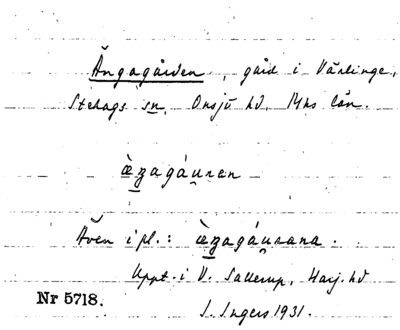 Ängagården, gård i Värlinge,
Stehags sn, Onsjö hd, Mhs län.
èŋagáu̯ren
Även i pl.: èŋagáu̯rana.
Uppt. i V. Sallerup, Harj. hd
Nr 5718. I. Ingers 1931.